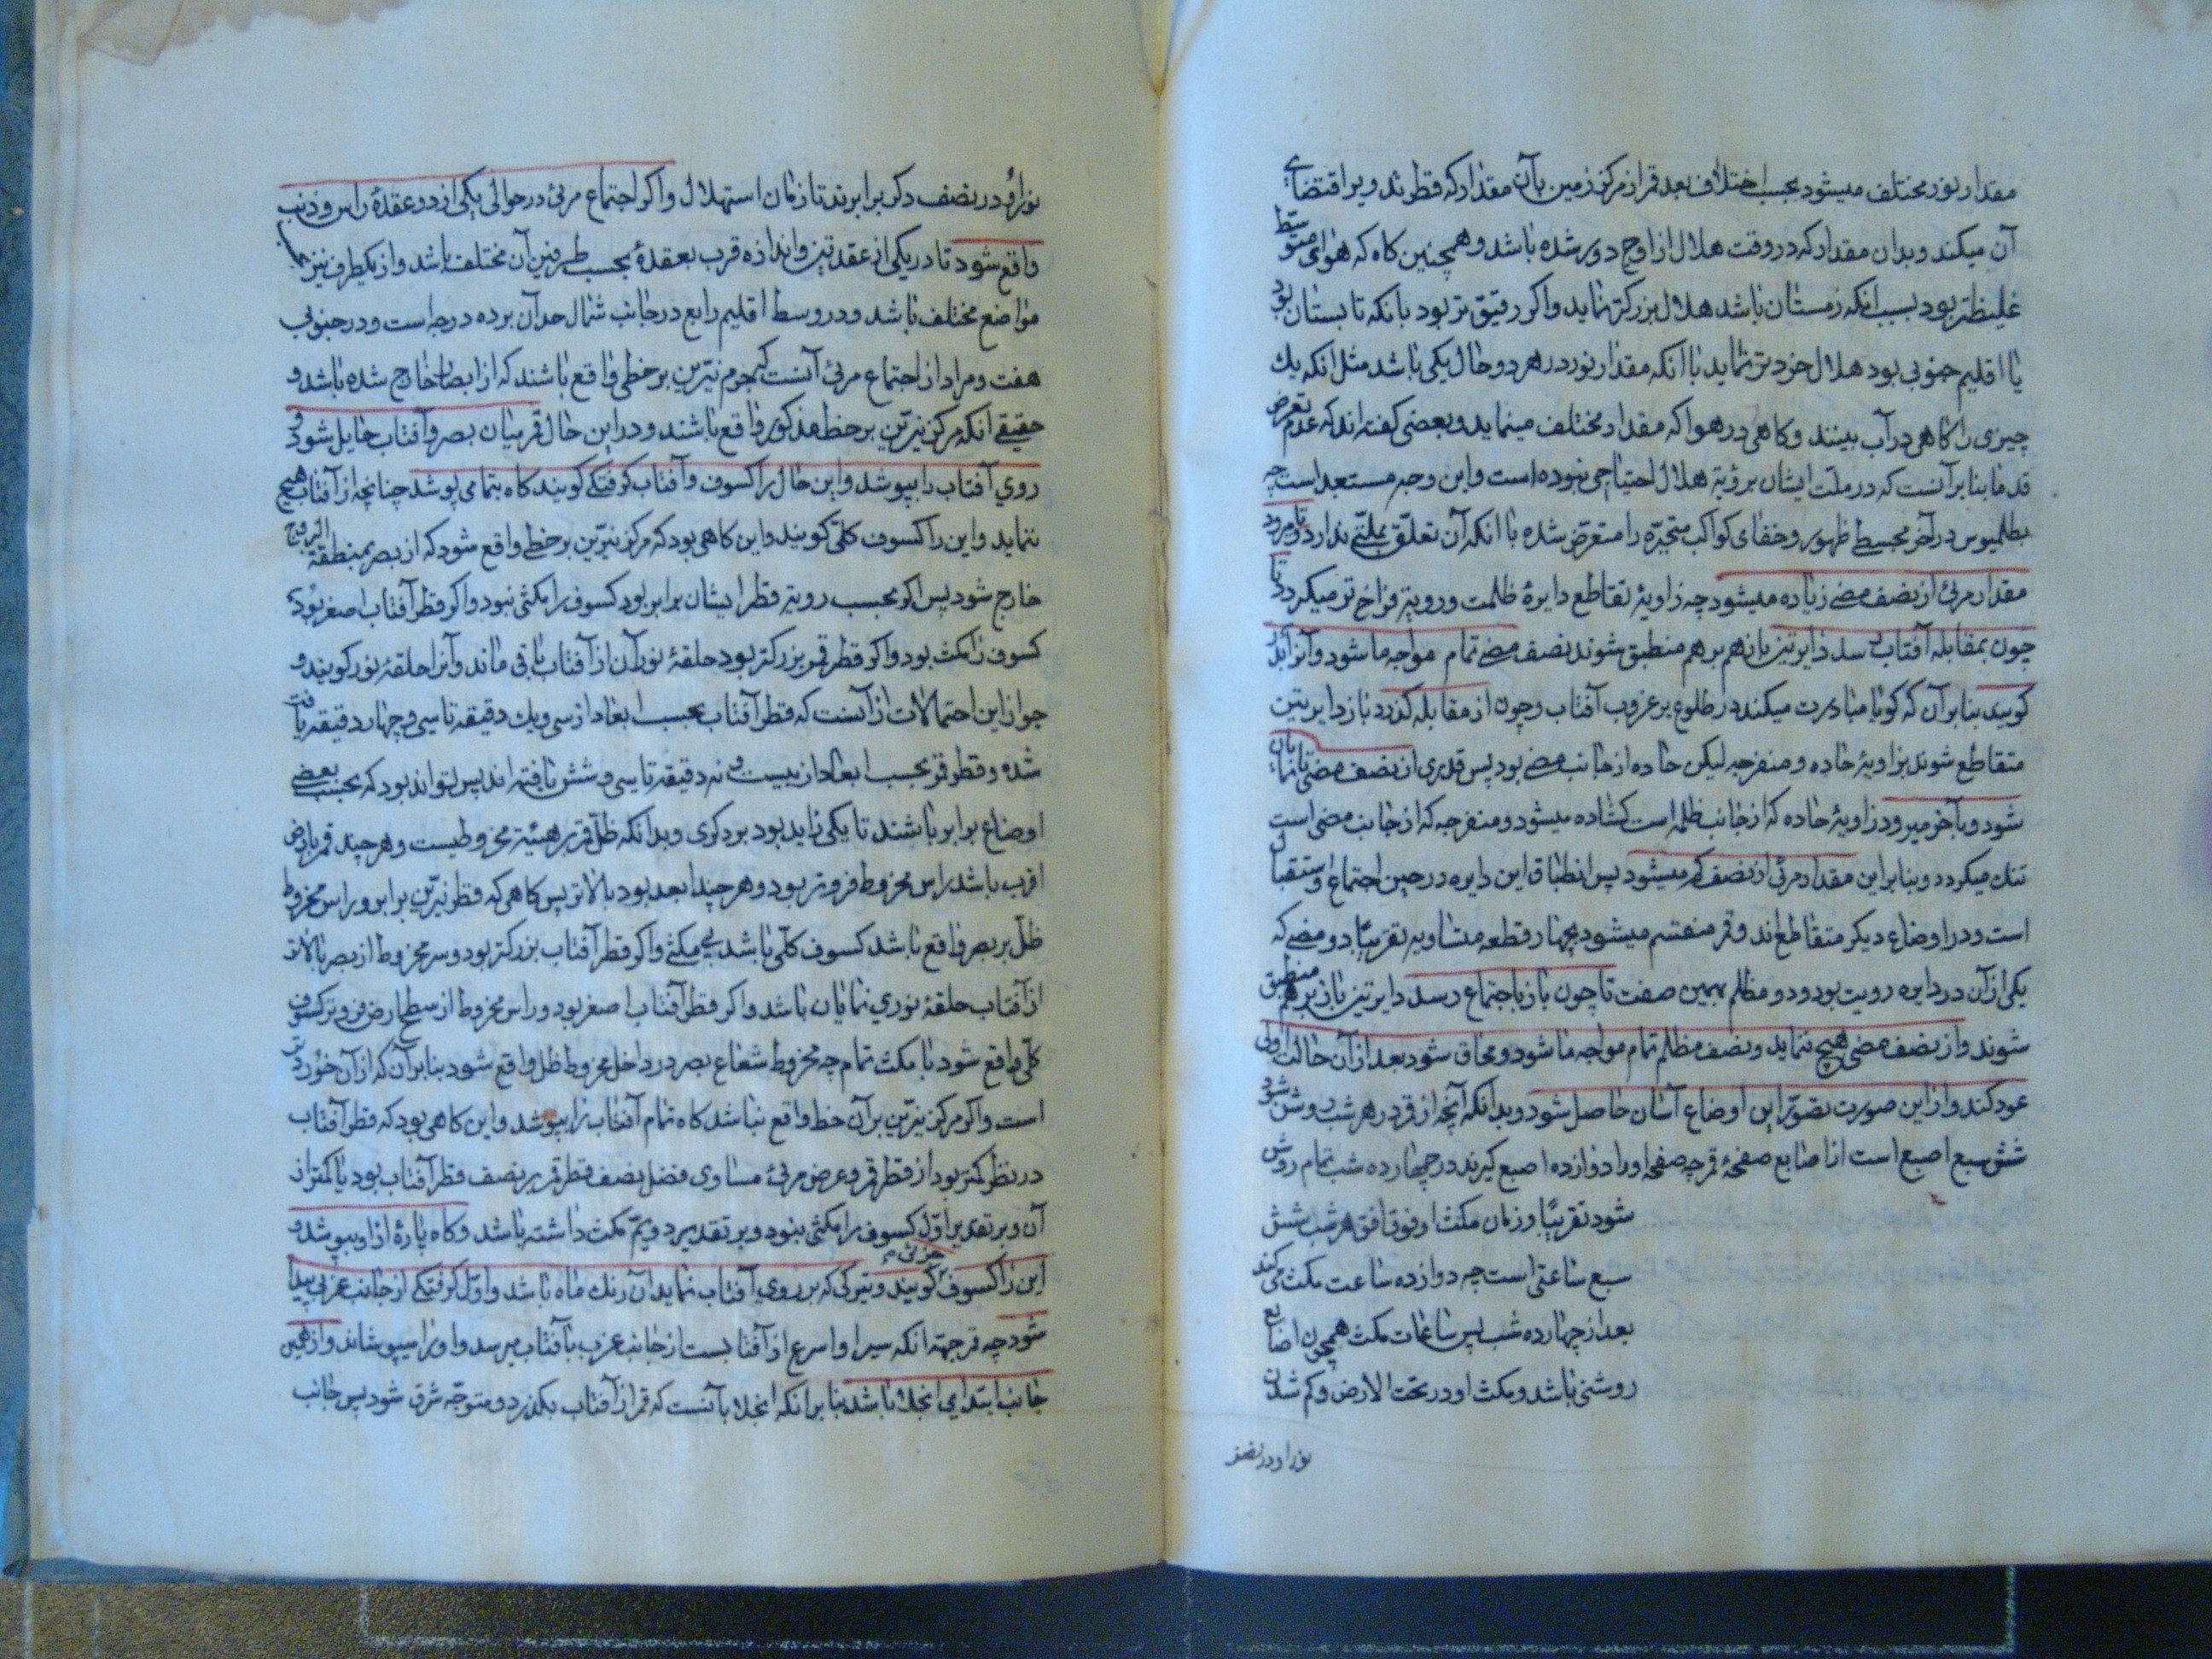 مقدار نور مختلف میشود بحسب اختلاف بعد قمر از مرکز زمین بآن مقدار که قطر تدویر اقتضای
آن میکند و بدان مقدار که در وقت هلال از اوج دور شده باشد و همچنین کاه که هوای متوسط
غلیظتر بود بسبب انکه زمستان باشد هلال بزرکتر نماید و اکر رقیق تر بود بانکه تابستان بود
یا اقلیم جنوبی بود هلال خردتر نماید با انکه مقدار نور در هر دو حال یکی باشد مثل انکه یك
چیزی را کاهی در آب بینند و کاهی در هوا که مقدار مختلف مینماید و بعضی کفته اند که عدم تعرض
قدما بنا بر آنست که در ملت ایشان برؤیة هلال احتیاجی نبوده است و این وجه مستبعد است چه
بطلمیوس در آخر مجسطی ظهور و خفای کواکب متحیّره را متعرّض شده با انکه آن تعلّق بملّتی ندارد
مقدار مرئی از نصف مضی زیاده میشود چه زاویۀ تقاطع دایرۀ ظلمت و رویة فراخ تر میکردد تا
چون بمقابلۀ آفتاب رسد دایرتین بازهم بر هم منطبق شوند نصف مضی تمام مواجه ما شود و آنرا بدر
کویند بنا بر آن که کویا مبادرت میکند در طلوع بر غروب آفتاب و چون از مقابله کذرد باز دایرتین
متقاطع شوند بزاویۀ حاده و منفرجه لیکن حاده از جانب مضی بود پس قدری از نصف مضی نمایان
شود و بآخر میرود زاویۀ حاده که از جانب ظلمه است کشاده میشود و منفرجه که از جانب مضی است
تنك میکردد و بنا براین مقدار مرئی از نصف کم میشود پس انطباق این دایره در حین اجتماع و استقبال
است و در اوضاع دیکر متقاطع اند و قمر منقسم میشود بچهار قطعه متساویه تقریباً دو مضی که
یکی از آن در دایره رویت بود و دو مظلم بهمین صفت تا چون باز باجتماع رسد دایرتین باز بر هم منطبق
شوند و از نصف مضی هیچ ننماید و نصف مظلم تمام مواجه ما شود و محاق شود بعد از آن حالت اولی
عود کند و از این صورت تصوّر این اوضاع آسان حاصل شود و بدانکه آنچه از قمر در هر شب روشن شود
شش سبع اصبع است از اصابع صفحۀ قمر چه صفحه اورا دوازده اصبع کیرند در چهارده شب تمام روشن
شود تقریباً و زمان مکث او فوق افق هر شب شش
سبع ساعتی است چه دوازده ساعت مکث کند
بعد از چهارده شب پس ساعات مکث همچون اصابع
روشنی باشد و مکث او در تحت الارض و کم شدن
نور او در نصف
نور او در نصف دکر برابرند تا زمان استهلال و اکر اجتماع مرئی در حوالی یکی از دو عقدۀ راس و ذنب
واقع شود تا در یکی از عقدتین و اندازه قرب بعقدۀ بحسب طرفین آن مختلف باشد و از یکطرف نیز
مواضع مختلف باشد و در وسط اقلیم رابع در جانب شمال حد آن برده درجه است و در جنوبی
هفت و مراد از اجتماع مرئی آنست که جرم نیّرین بر خطی واقع باشند که از ابصار خارج شده باشد و
حقیقی آنکه مرکز نیّرین بر خط مذکور واقع باشند و در این حال قمر میان بصر و آفتاب حایل شود و
روی آفتاب را بپوشد و این حال را کسوف و آفتاب کرفتکی کویند کاه بتمامی پوشد چنانچه از آفتاب هیچ
ننماید و این را کسوف کلّی کویند و این کاهی بود که مرکز نیّرین بر خطی واقع شود که از بصر بمنطقة البروج
خارج شود پس اکر بحسب رویة قطر ایشان برابر بود کسوف را مکثی نبود و اکر قطر آفتاب اصغر بود
کسوف را مکث بود و اکر قطر قمر بزرکتر بود حلقۀ نور آن از آفتاب باقی ماند و آنرا حلقۀ نور کویند و
جواز این احتمالات از آنست که قطر آفتاب بحسب ابعاد از سی و یك دقیقه تا سی و چهار دقیقه یافت
شده و قطر قمر بحسب ابعاد از بیست و نه دقیقه تا سی و شش یافته اند پس تواند بود که بحسب بعضی
اوضاع برابر باشند تا یکی زاید بود بر دکری و بدانکه ظلّ قمر بر هیئة مخروطیست و هر چند قمر بارض
اقرب باشد راس مخروط فروتر بود و هر چند ابعد بود بالاتر پس کاهی که قطر نیّرین برابر و راس مخروط
ظلّ بر بصر واقع باشد کسوف کلّی باشد بی مکثی و اکر قطر آفتاب بزرکتر بود و سر مخروط از بصر بالاتر
از آفتاب حلقۀ نوری نمایان باشد و اکر قطر آفتاب اصغر بود و راس مخروط از سطح ارض فروتر کسوف
کلّی واقع شود با مکث تمام چه مخروط شعاع بصر در داخل مخروط ظل واقع شود بنا بر آن که از آن خوردتر
است و اکر مرکز نیّرین بر آن خط واقع نباشد کاه تمام آفتاب را بپوشد و این کاهی بود که قطر آفتاب
در نظر کمتر بود از قطر قمر و عرض مرئی مساوی فضل نصف قطر قمر بر نصف قطر آفتاب بود یا کمتر از
آن و بر تقدیر اوّل کسوف را مکثی نبود و بر تقدیر دویم مکث داشته باشد و کاه پارۀ از او بپوشد و
این را کسوف جزئی کویند و تیرکی که بر روی آفتاب نماید آن رنك ماه باشد و اوّل کرفتکی از جانب غربی پیدا
شود چه قمر جهة انکه سیر او اسرع از آفتابست از جانب غرب بآفتاب میرسد و او را میپوشاند و از همین
جانب ابتدای انجلا باشد بنا بر انکه انجلا بآنست که قمر از آفتاب بکذرد و متوجّه شرق شود پس جانب